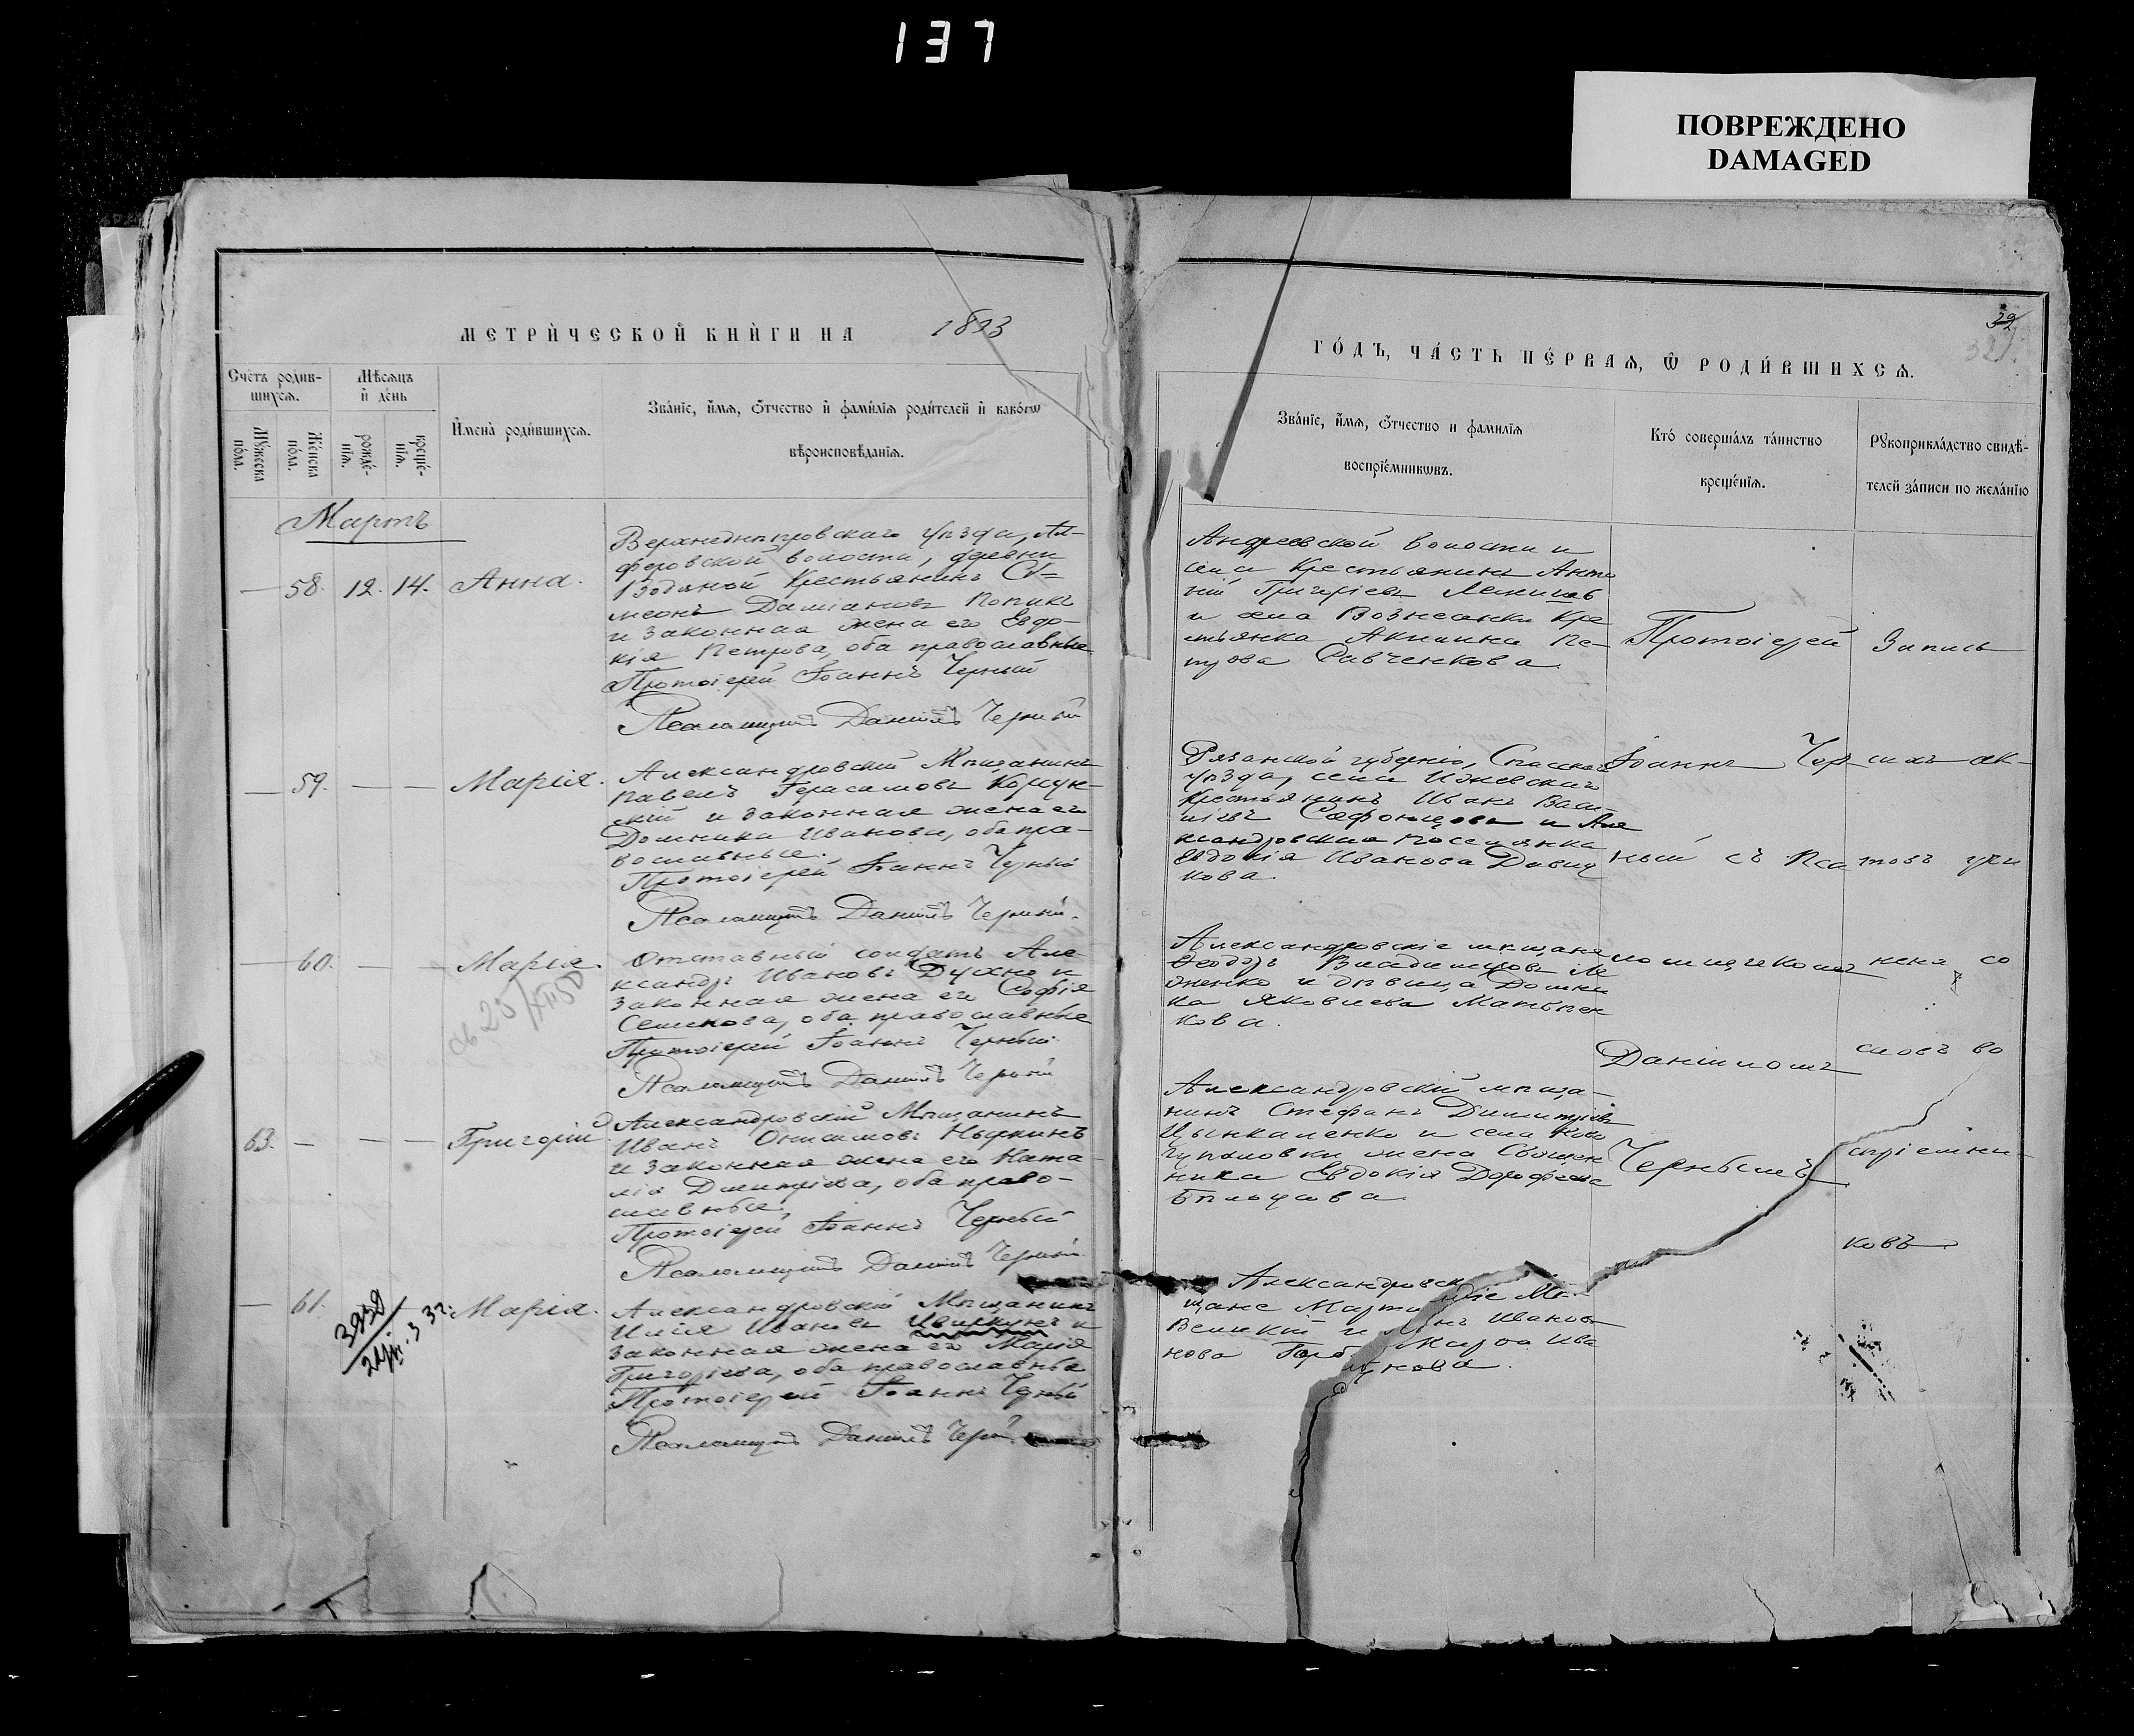 137
ПОВРЕЖДЕНО
DAMAGED
МЕТРИ́ЧЕСКОЙ КНИ́ГИ НА 1893
ГО́ДЪ, ЧА́СТЬ ПЕ́РВАѦ, Ѿ РОДИ́ВШИХСѦ.
32
Счетъ родив-
шихсѧ.
Мѣсѧцъ
и день
Мꙋжеска
пола.
Женска
пола.
рожде-
нїѧ.
креще-
нїѧ.
Имена родившихсѧ.
Званїе, имѧ, ѻтчество и фамилїѧ родителей и какогѡ
вѣроисповѣданїѧ.
Званїе, имѧ, ѻтчество и фамилїѧ
воспрїемникѡвъ.
Кто совершалъ таинство
крещенїѧ.
Рꙋкоприкладство свидѣ-
телей записи по желанїю
Мартъ
58. 12. 14. Анна.
Верхнеднѣпровскаго уѣзда, Ал-
феровской волости, деревни
Водяной Крестьянинъ Си-
меонъ Даміановъ Попикъ
и законная жена его Евдо-
кія Петрова, оба православные
Протоіерей Іоаннъ Черный
Псаломщикъ Даніилъ Черный
Андреевской волости и
села Крестьянинъ Анто
ній Григорьевъ
и села Вознесенки Кре
стьянка Акилина Пе-
трова Савченкова.
Протоіерей
Запись
59. Марія.
Александровскій Мѣщанинъ
Павелъ Герасимовъ
и законная жена его
Домника Иванова, оба пра-
вославные.
Протоіерей Іоаннъ Черный
Псаломщикъ Даніилъ Черный.
Рязанской губерніи, Спасскаго
уѣзда, села Ижевскаго
Крестьянинъ Иванъ Васи-
ліевъ и Але
ксандровская поселянка
Евдокія Иванова Давид
кова.
Іоаннъ Чер
ный съ Пса
сихъ ак-
товъ учи
60. Марія.
Отставный солдатъ Але-
ксандръ Ивановъ Духно и
законная жена его Софія
Семенова, оба православные
Протоіерей Іоаннъ Черный.
Псаломщикъ Даніилъ Черный
Александровскіе мѣщане
Ѳеодоръ Владиміровъ Ле
оненко и дѣвица Домни
ка Яковлева Матвѣен
кова.
ломщикомъ
Даніиломъ
нена со
словъ во
63. Григорій
Александровскій Мѣщанинъ
Иванъ Онисимовъ
и законная жена его Ната-
лія Димитріева, оба право-
славные,
Протоіерей Іоаннъ Черный
Псаломщикъ Даніилъ Черный
Александровскій мѣща-
нинъ Стефанъ Димитріевъ
Цынкаленко и села Ново
гупаловки жена Священ
ника Евдокія Дороѳеева
Бѣлоусова.
Чернымъ
спріемни-
ковъ
61. Марія.
Александровскій Мѣщанинъ
Илія Ивановъ Цвиркунъ и
законная жена его Марія
Григорьева, оба православные
Протоіерей Іоаннъ Черный
Псаломщикъ Даніилъ Черный
Александровскіе Мѣ-
щане
Великій и Марѳа Ива
нова